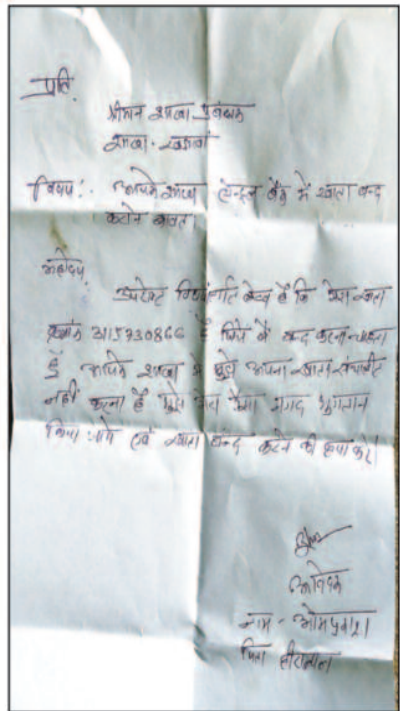 प्रति,
श्रीमान शाखा प्रबंधक
शाखा -
विषय:- आपके शाखा सेन्ट्रल बैंक में खाता बन्द
करने बाबत।
महोदय,
उपरोक्त विषयांतर्गत लेख है कि मेरा खाता
क्रमांक 3115730866 है जिसे मैं बन्द करना चाहता
हूँ आपके शाखा में मुझे अपना खाता संचालित
नहीं करना है मुझे मेरा पैसा नगद भुगतान
किया जाये एवं खाता बन्द करने की कृपा करें।
आवेदक
नाम - ओमप्रकाश
पिता हीरालाल